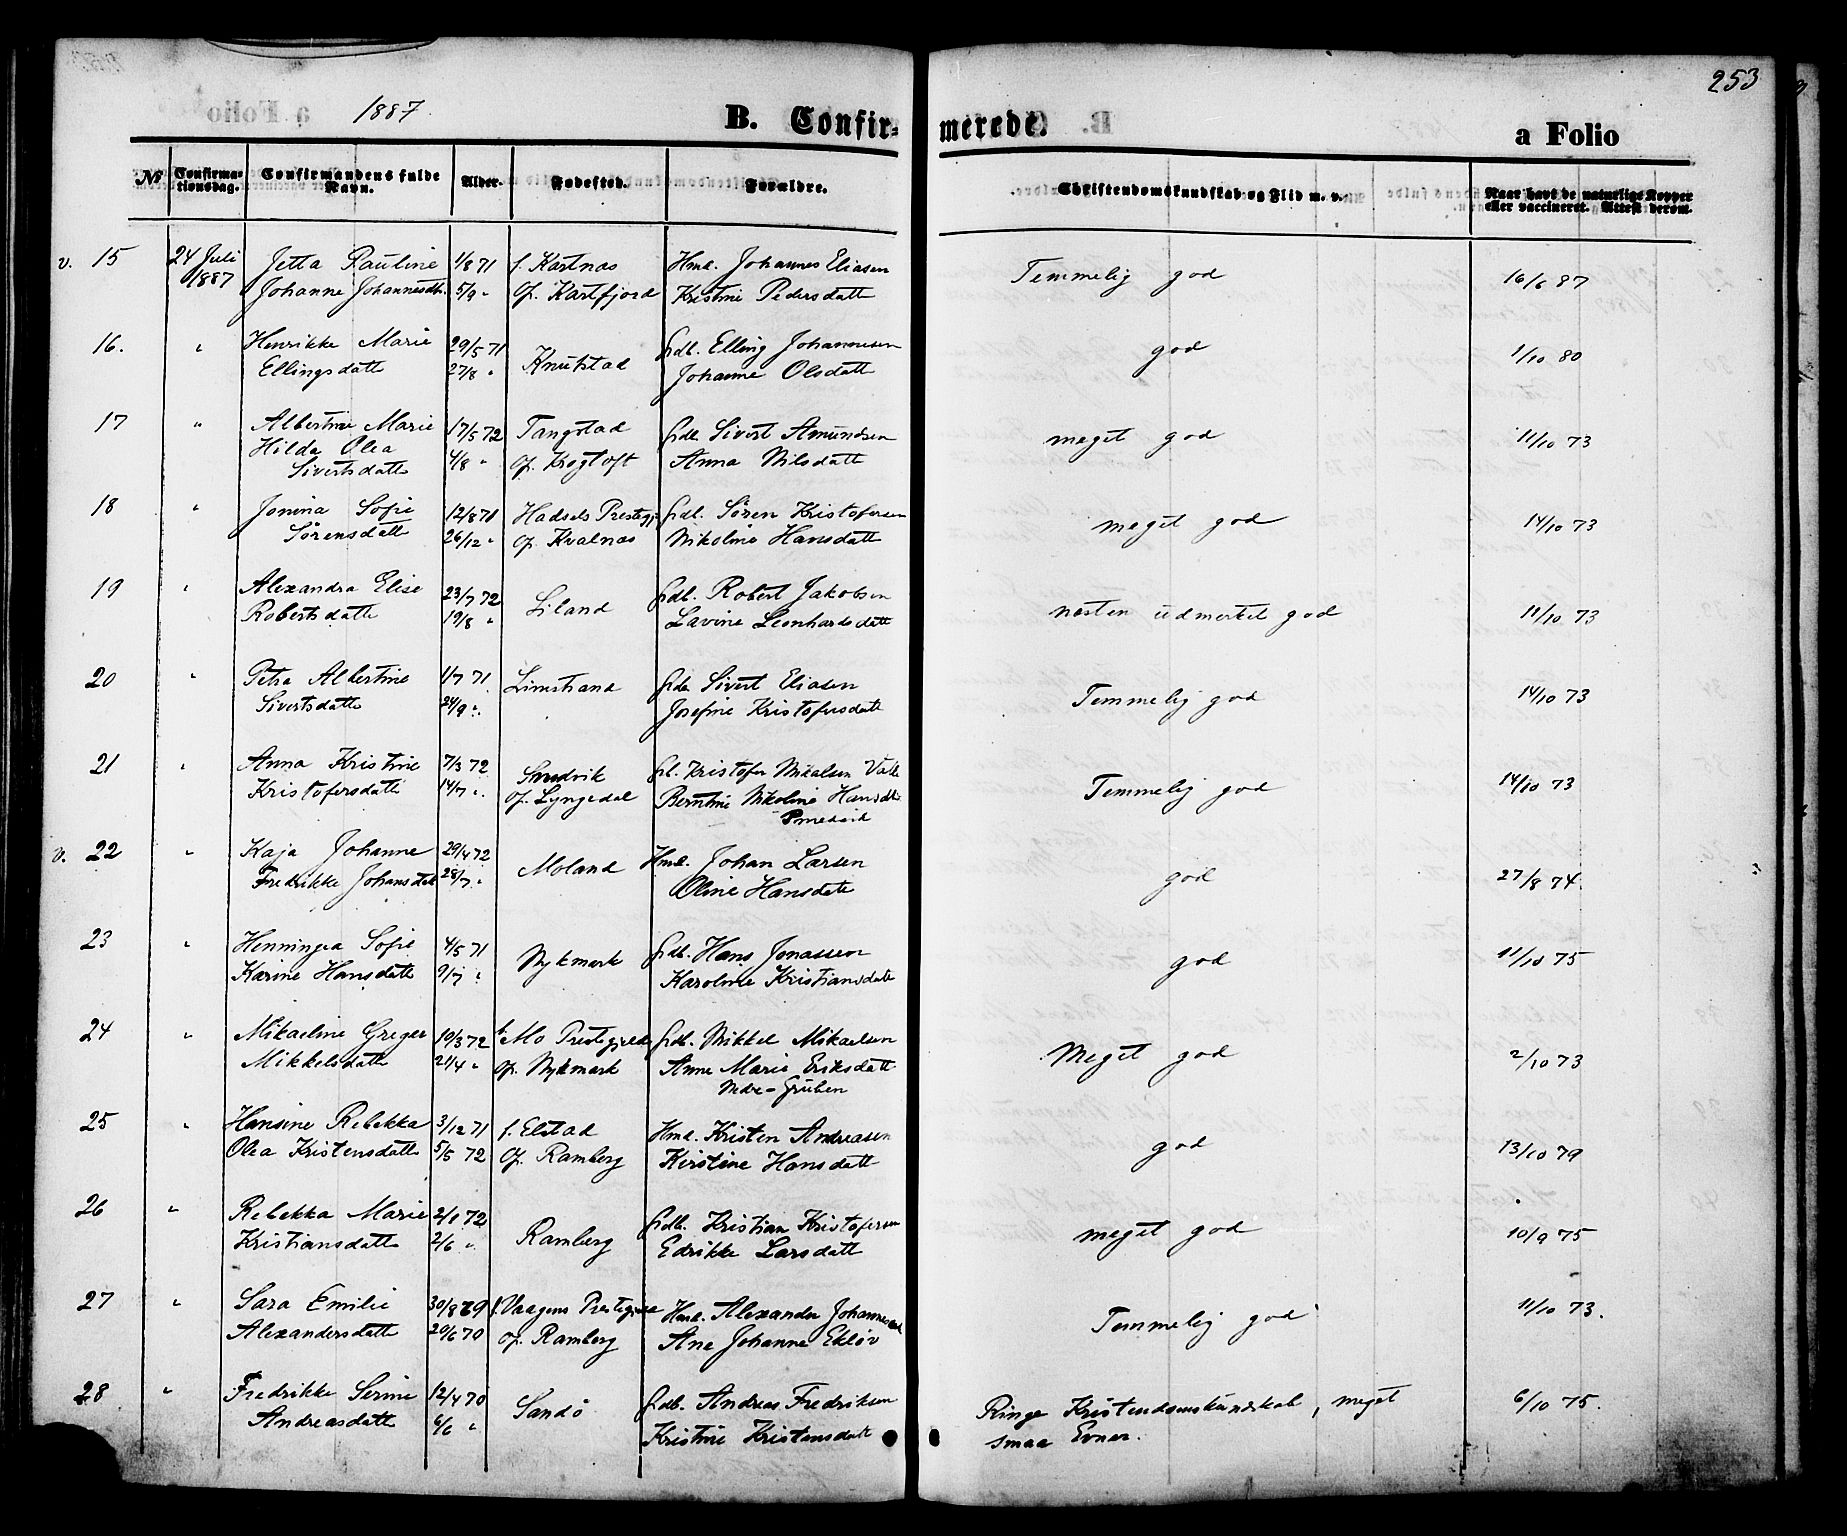 253
a Folio 1887 B. Confirmerede. a Folio
№ Confirmationsdag. Confirmandens fulde Navn. Alder. Fødested. Forældre. Christendomskundskab og Flid m. v. Naar havt de naturlige Kopper eller vaccineret. Attest derom.
v. 15 24 Juli Jetta Pauline 1/8 71 f. Kartnæs Hmd. Johannes Eliasen Temmelig god 16/6 87
1887 Johanne Johannesdt. 5/9 " Of. Kartfjord Kristine Pedersdatt
16. " Henrikke Marie 29/5 71 Knutstad Grdb. Elling Johannesen god 1/10 80
Ellingsdatt 27/8 " Johanne Olsdatt
17 " Albertine Marie 17/5 72 Tangstad Grdb Sivert Amundsen meget god 11/10 73
Hilda Olea 4/8 " Of. Krogtoft Anna Nilsdatt
Sivertsdatt
18 " Jonina Sofie 12/8 71 Hadsels Prestegj. Grdb. Søren Kristofersen meget god 14/10 73
Sørensdatt 26/12 " Of. Kvalnæs Nikoline Hansdatt
19 " Alexandra Elise 23/7 72 Liland Grdb. Robert Jakobsen næsten udmerket god 11/10 73
Robertsdatt 19/8 " Lavine Leonhardsdatt
20 " Petra Albertine 1/7 71 Limstrand Grdb Sivert Eliasen Temmelig god 14/10 73
Sivertsdatt 24/9 " Josefine Kristofersdatt
21 " Anna Kristine 7/3 72 Smedvik Kristofer Mikalsen Temmelig god 14/10 73
Kristofersdatt 14/7 " Of. Lyngedal Berntine Nikoline Hansdt
v. 22 " Kaja Johanne 29/4 72 Moland Hmd. Johan Larsen god 27/8 74
Fredrikke Johansdatt 28/7 " Oline Hansdatt
23 " Henningea Sofie 4/5 71 Nykmark Grdb. Hans Jonassen god 11/10 75
Karine Hansdatt 9/7 " Karoline Kristiansdatt
24 " Mikaeline Greger 19/3 72 f. Mo Prestegjeld Grdb. Mikkel Mikaelsen Meget god 2/10 73
Mikkelsdatt 21/4 " Of. Nykmark Anne Marie Eriksdatt
Gruben
25 " Hansine Rebekka 3/12 71 f. Elstad Hmd. Kristen Andreasen god 13/10 79
Olea Kristensdatt 5/5 72 Of. Ramberg Kirstine Hansdatt
26 " Rebekka Marie 2/1 72 Ramberg Grdb. Kristian Kristofersen meget god 10/9 75
Kristiansdatt 2/6 " Edrikke Larsdatt
27 " Sara Emilie 30/8 69 f. Vaagens Prestegjeld Hmd. Alexander Johannesen Temmelig god 11/10 73.
Alexandersdatt 20/6 70 Of. Ramberg Ane Johanne Ekløv
28 " Fredrikke Serine 12/4 70 Sandø Grdb. Andreas Fredriksen Ringe Kristendomskundskab, meget 6/10 75.
Andreasdatt 6/6 " Kristine Kristensdatt smaa Evner.